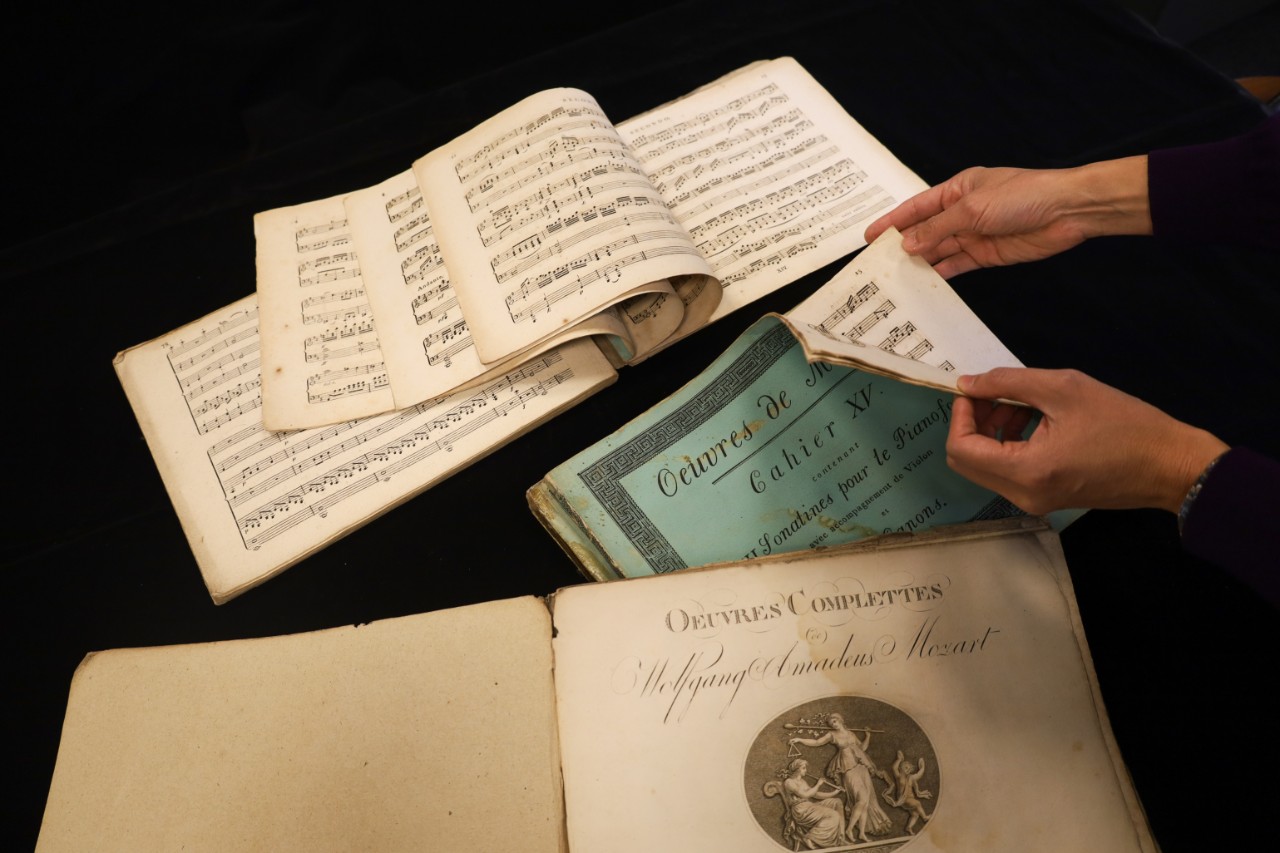 Oeuvres de
Cahier XV.
contenant
Sonatines pour le
avec accompagnement de Violon
et
Canons.
OEUVRES COMPLETTES
de
Wolfgang Amadeus Mozart